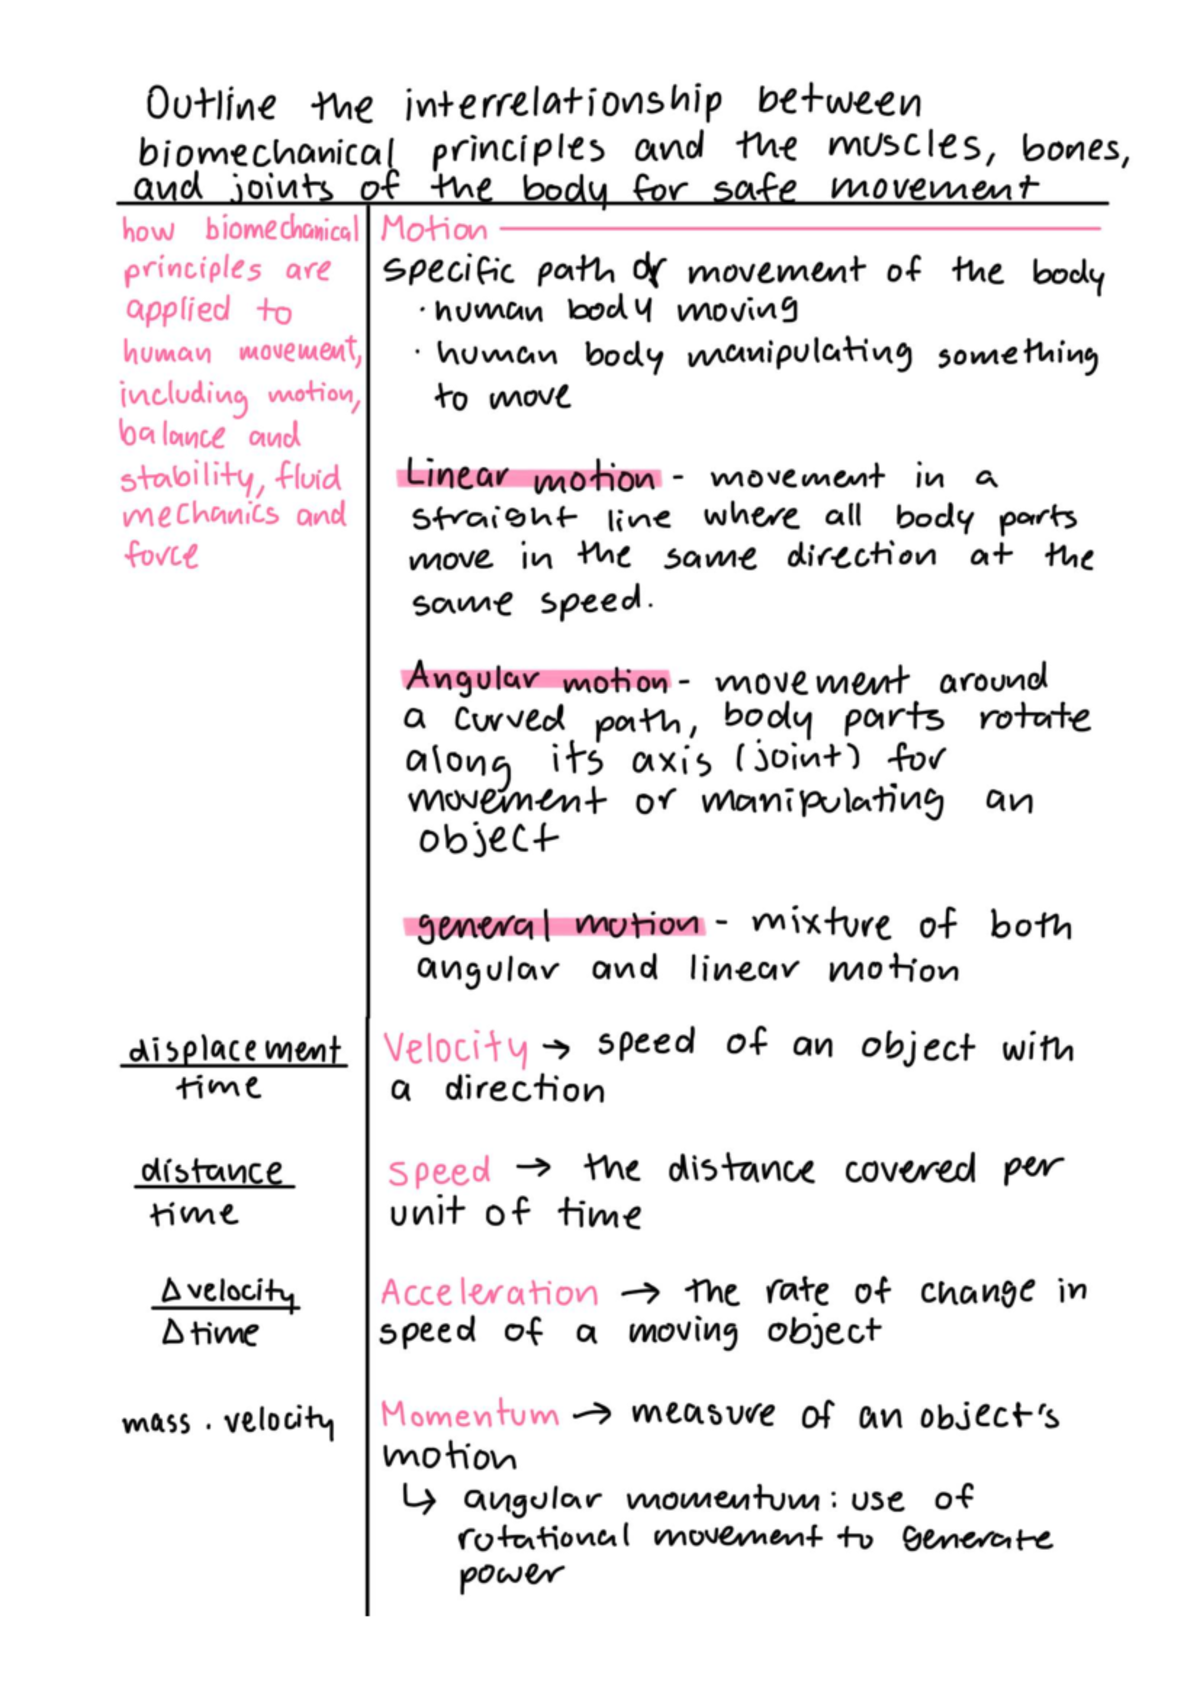 Outline the interrelationship between
biomechanical principles and the muscles, bones,
and joints of the body for safe movement
how biomechanical
principles are
applied to
human movement,
including motion,
balance and
stability, fluid
mechanics and
force
Motion
specific path or movement of the body
· human body moving
· human body manipulating something
to move
Linear motion - movement in a
straight line where all body parts
move in the same direction at the
same speed.
Angular motion - movement around
a curved path, body parts rotate
along its axis (joint) for
movement or manipulating an
object
general motion - mixture of both
angular and linear motion
displacement
time
Velocity → speed of an object with
a direction
distance
time
speed → the distance covered per
unit of time
Δ velocity
Δ time
Acceleration → the rate of change in
speed of a moving object
mass . velocity
Momentum → measure of an object's
motion
↳ angular momentum: use of
rotational movement to generate
power